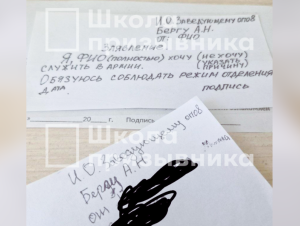 Школа
призывника
И.О. Заведующему ОПОВ
Бергу А.Н.
от ФИО
Заявление.
Я, ФИО (полностью) хочу (не хочу)
служить в армии. (указать причину)
Обязуюсь соблюдать режим отделения
Дата. подпись
20 г. Подпись
Школа
призывника
И О. Заведующему ОПОВ
Бергу А.Н
от